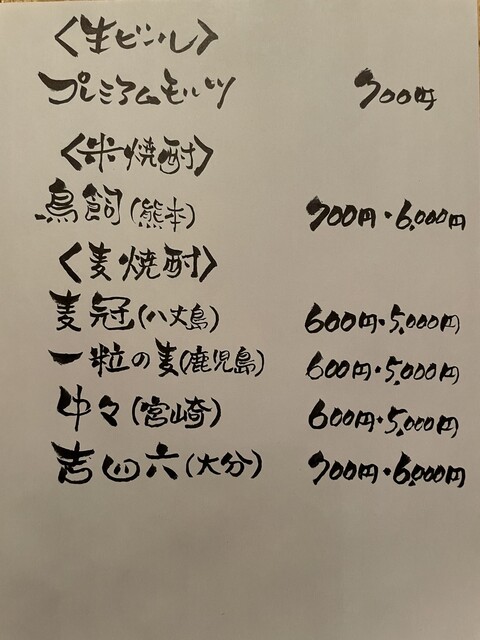 〈生ビール〉
プレミアムモルツ 700円
〈米焼酎〉
鳥飼(熊本) 700円・6,000円
〈麦焼酎〉
麦冠(八丈島) 600円・5,000円
一粒の麦(鹿児島) 600円・5,000円
中々(宮崎) 600円・5,000円
吉四六(大分) 700円・6,000円